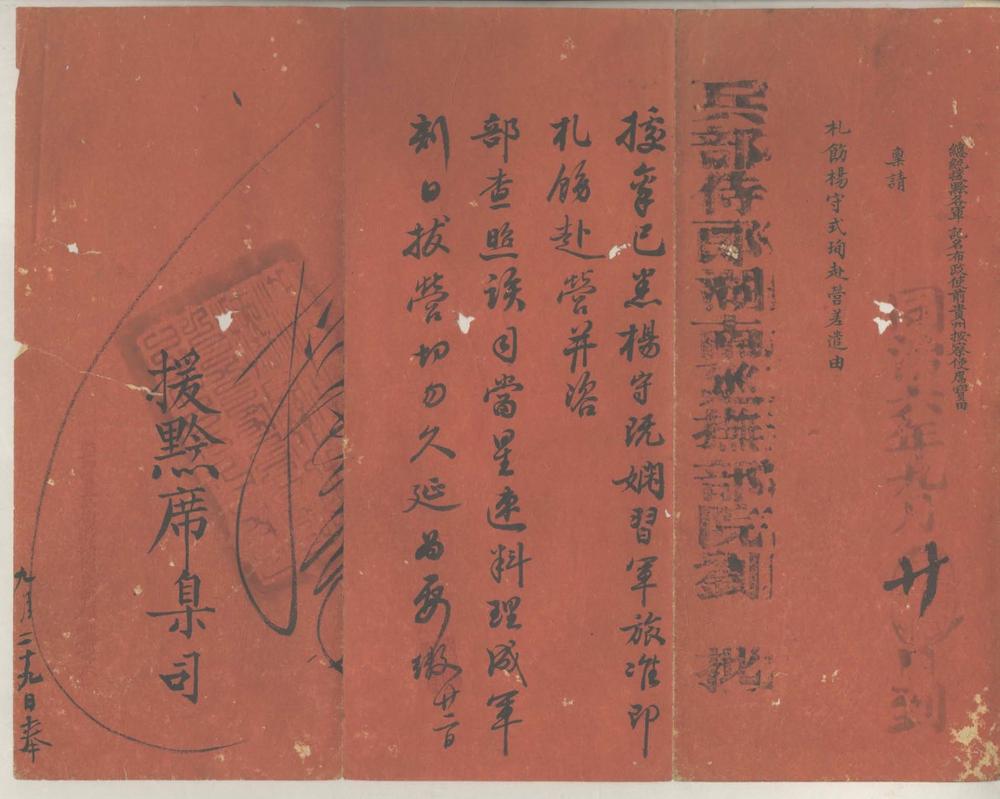 總統援黔各軍記名布政使前貴州按察使席寶田
同治六年九月廿日到
稟請
札飭楊守式珣赴營差遣由
兵部侍郎湖南巡撫部院劉 批
據稟已悉楊守既嫻習軍旅准即
札飭赴營并咨
部查照該司當星速料理成軍
剋日拔營切勿久延為要繳廿二日
援黔席臬司
九月二十九日奉